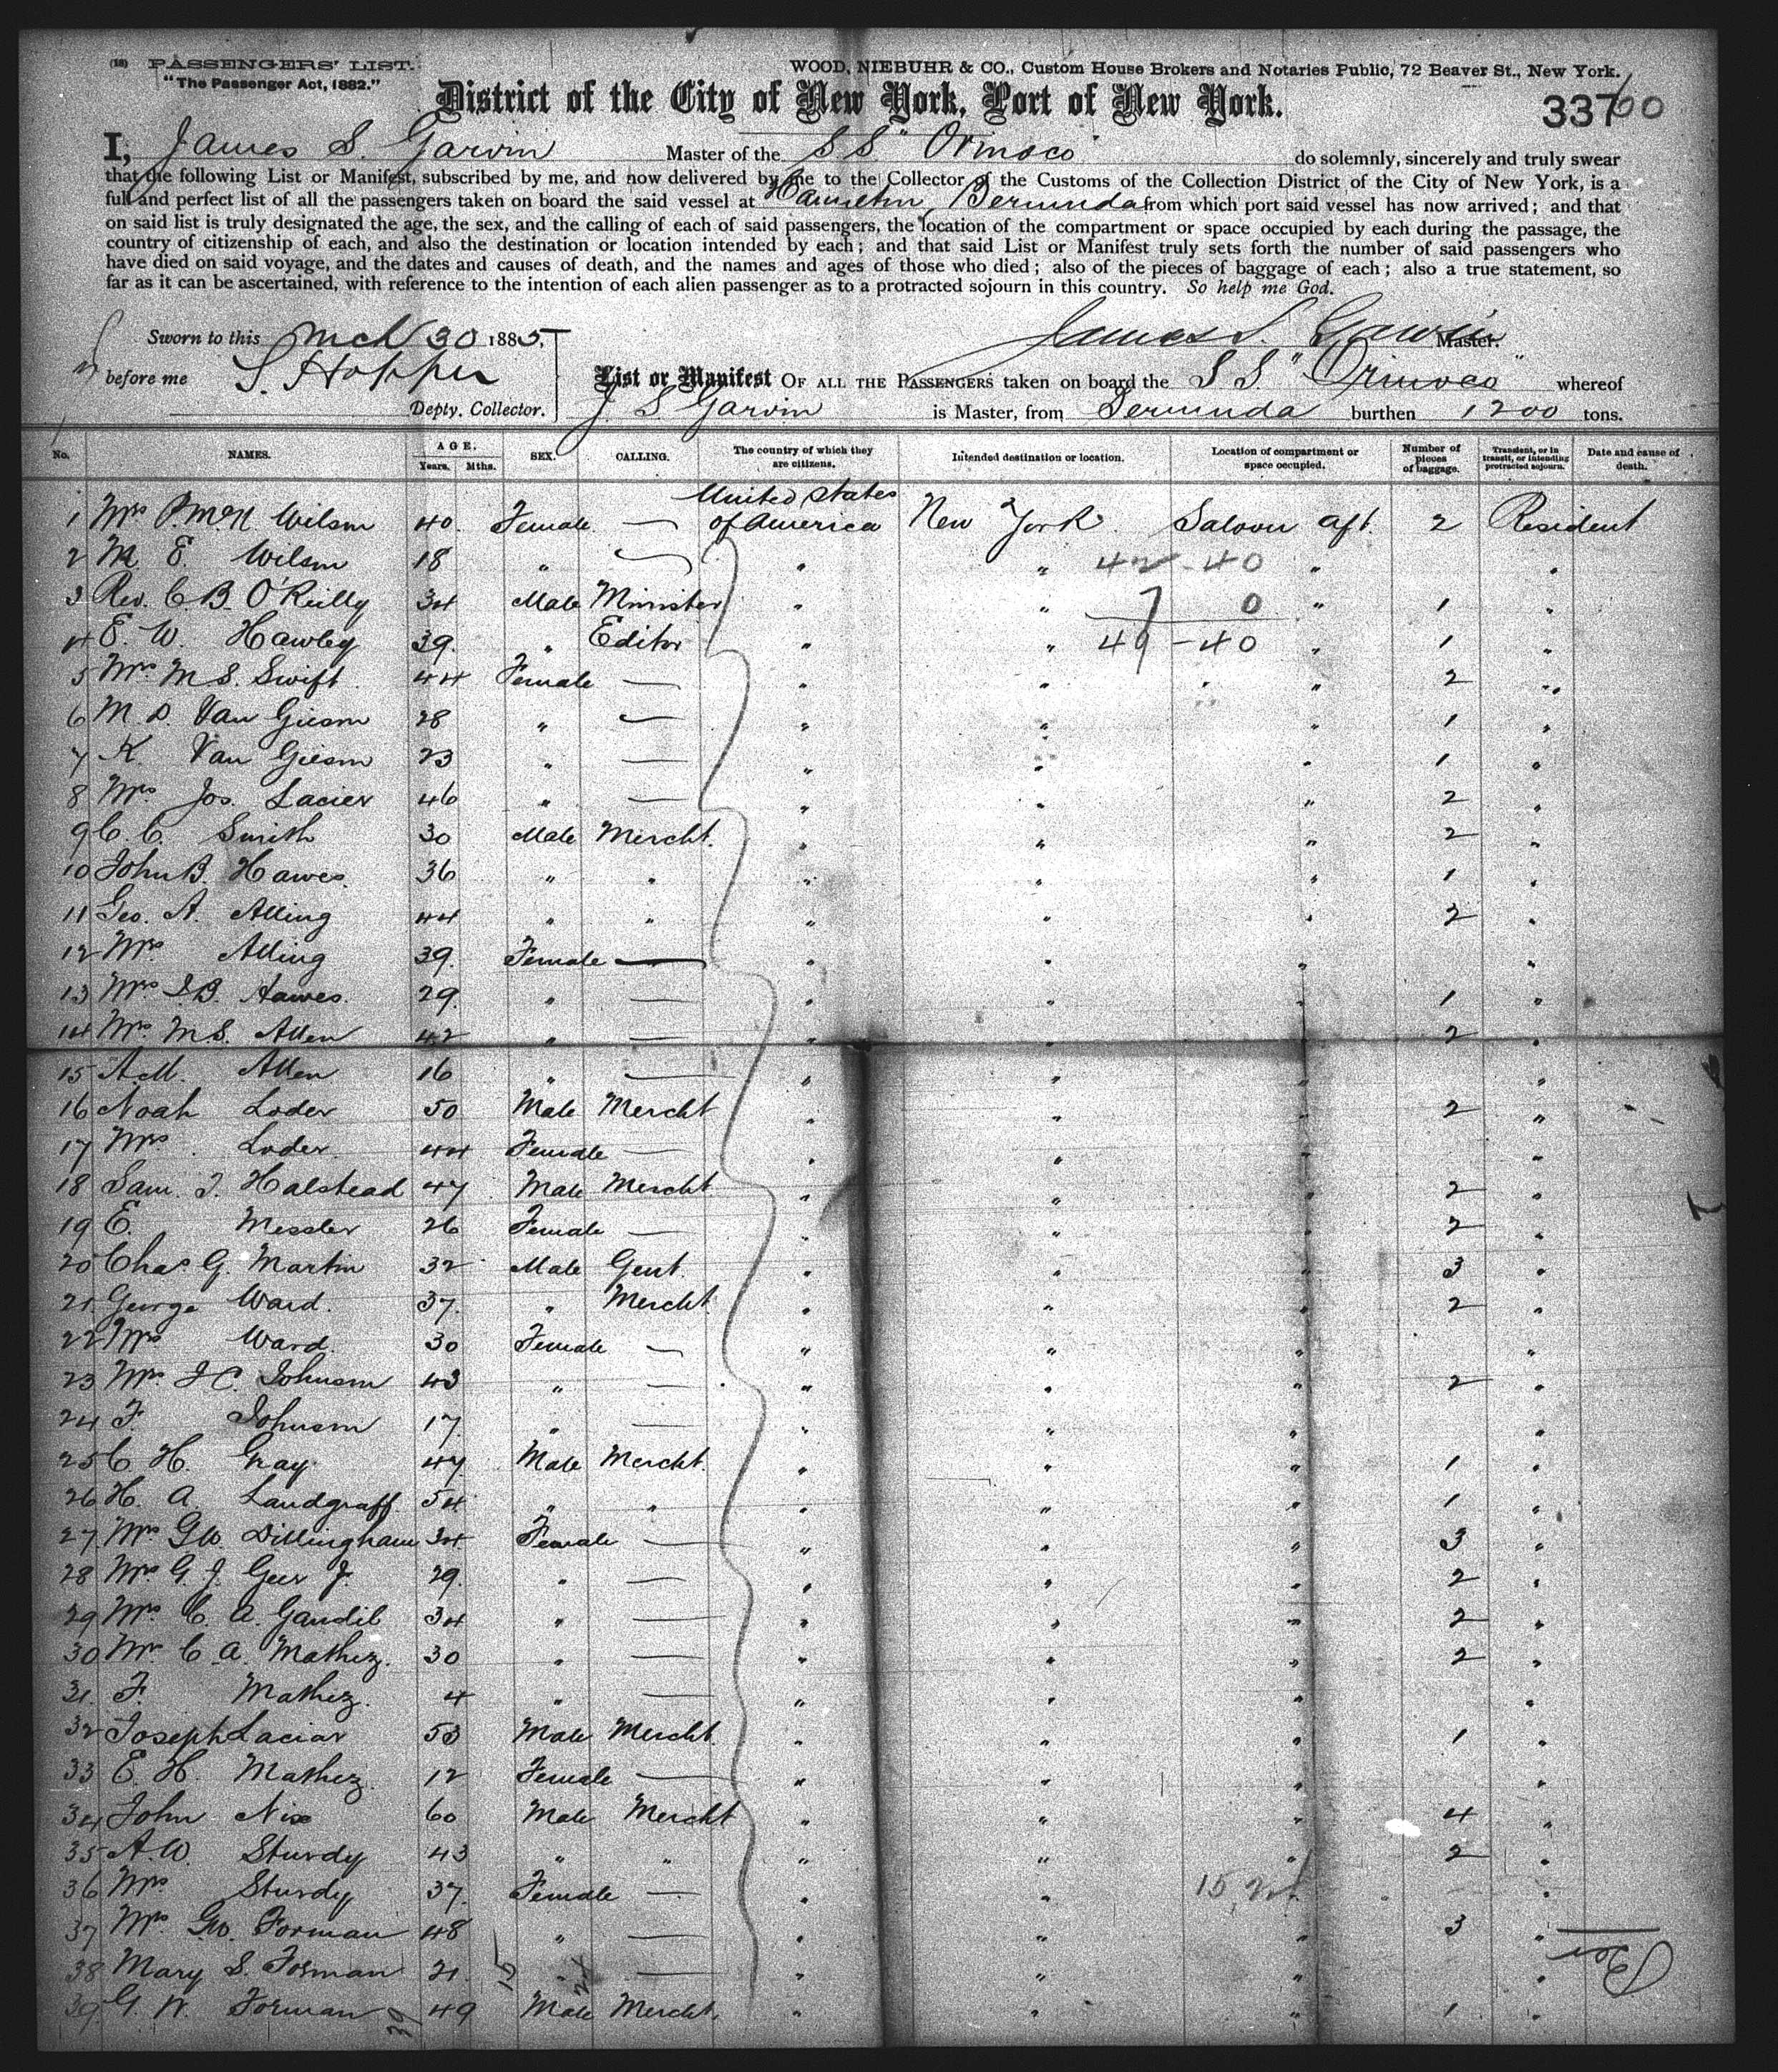 (18) PASSENGERS' LIST.
"The Passenger Act, 1882."
WOOD, NIEBUHR & CO., Custom House Brokers and Notaries Public, 72 Beaver St., New York.
District of the City of New York, Port of New York.
337
I, James S. Garvin Master of the S.S. "Orinoco do solemnly, sincerely and truly swear
that the following List or Manifest, subscribed by me, and now delivered by me to the Collector of the Customs of the Collection District of the City of New York, is a
full and perfect list of all the passengers taken on board the said vessel at Hamilton, Bermuda from which port said vessel has now arrived; and that
on said list is truly designated the age, the sex, and the calling of each of said passengers, the location of the compartment or space occupied by each during the passage, the
country of citizenship of each, and also the destination or location intended by each; and that said List or Manifest truly sets forth the number of said passengers who
have died on said voyage, and the dates and causes of death, and the names and ages of those who died; also of the pieces of baggage of each; also a true statement, so
far as it can be ascertained, with reference to the intention of each alien passenger as to a protracted sojourn in this country. So help me God.
Sworn to this Mch 30 1885, James S. Garvin Master.
before me S. Hopper
List or Manifest OF ALL THE PASSENGERS taken on board the S S "Orinoco" whereof
Depty. Collector. J. S. Garvin is Master, from Bermuda burthen 1200 tons.
No. NAMES. AGE. Years. Mths. SEX. CALLING. The country of which they are citizens. Intended destination or location. Location of compartment or space occupied. Number of pieces of baggage. Transient, or in transit, or intending protracted sojourn. Date and cause of death.
1 Mrs P. McN. Wilson 40. Female — United States of America New York Saloon aft. 2 Resident
2 M. E. Wilson 18 " — " " 42-40 " "
3 Rev. C. B. O'Reilly 34 Male Minister " " 7 0 " 1 "
4 E. W. Hawley 39. " Editor " " 49-40 " 1 "
5 Mrs. M S. Swift 44 Female — " " " 2 "
6 M. D. Van Giesen 28 " — " " " 1 "
7 K. Van Giesen 23 " — " " " 1 "
8 Mrs. Jos. Lacier 46 " — " " " 2 "
9 C. C. Smith 30 Male Mercht. " " " 2 "
10 John B. Hawes. 36 " " " " " 1 "
11 Geo. A. Alling 44 " " " " " 2 "
12 Mrs Alling 39. Female — " " " "
13 Mrs J.B. Hawes. 29. " — " " " 1 "
14 Mrs. M S. Allen 42 " — " " " 2 "
15 A.M. Allen 16 " — " " " "
16 Noah Loder 50 Male Mercht " " " 2 "
17 Mrs. Loder 44 Female — " " " "
18 Sam. J. Halstead 47 Male Mercht " " " 2 "
19 E. Messler 26 Female — " " " 2 "
20 Chas G. Martin 32 Male Gent. " " " 3 "
21 George Ward. 37. " Mercht. " " " 2 "
22 Mrs Ward. 30 Female — " " " "
23 Mrs. J C. Johnson 43 " — " " " 2 "
24 F. Johnson 17. " — " " " "
25 C H. Gray 47 Male Mercht. " " " 1 "
26 H. A. Landgraff 54 " " " " " 1 "
27 Mrs G.W. Dillingham 34 Female — " " " 3 "
28 Mrs G. J. Geer Jr. 29. " — " " " 2 "
29 Mrs. C. A. Gandil 34 " — " " " 2 "
30 Mrs. C. A. Mathez. 30 " — " " " 2 "
31. F. Mathez. 4 " — " " " "
32 Joseph Laciar 53 Male Mercht. " " " 1 "
33 E. H. Mathez. 12 Female — " " " "
34 John Nix 60 Male Mercht " " " 4 "
35 A.W. Sturdy 43 " " " " " 2 "
36 Mrs Sturdy 37. Female — " " 15 " "
37 Mrs. Geo. Forman 48 " — " " " 3 "
38 Mary S. Forman 21. " — " " " "
39. G. W. Forman 49 Male Mercht. " " " 1 "
39 15 24